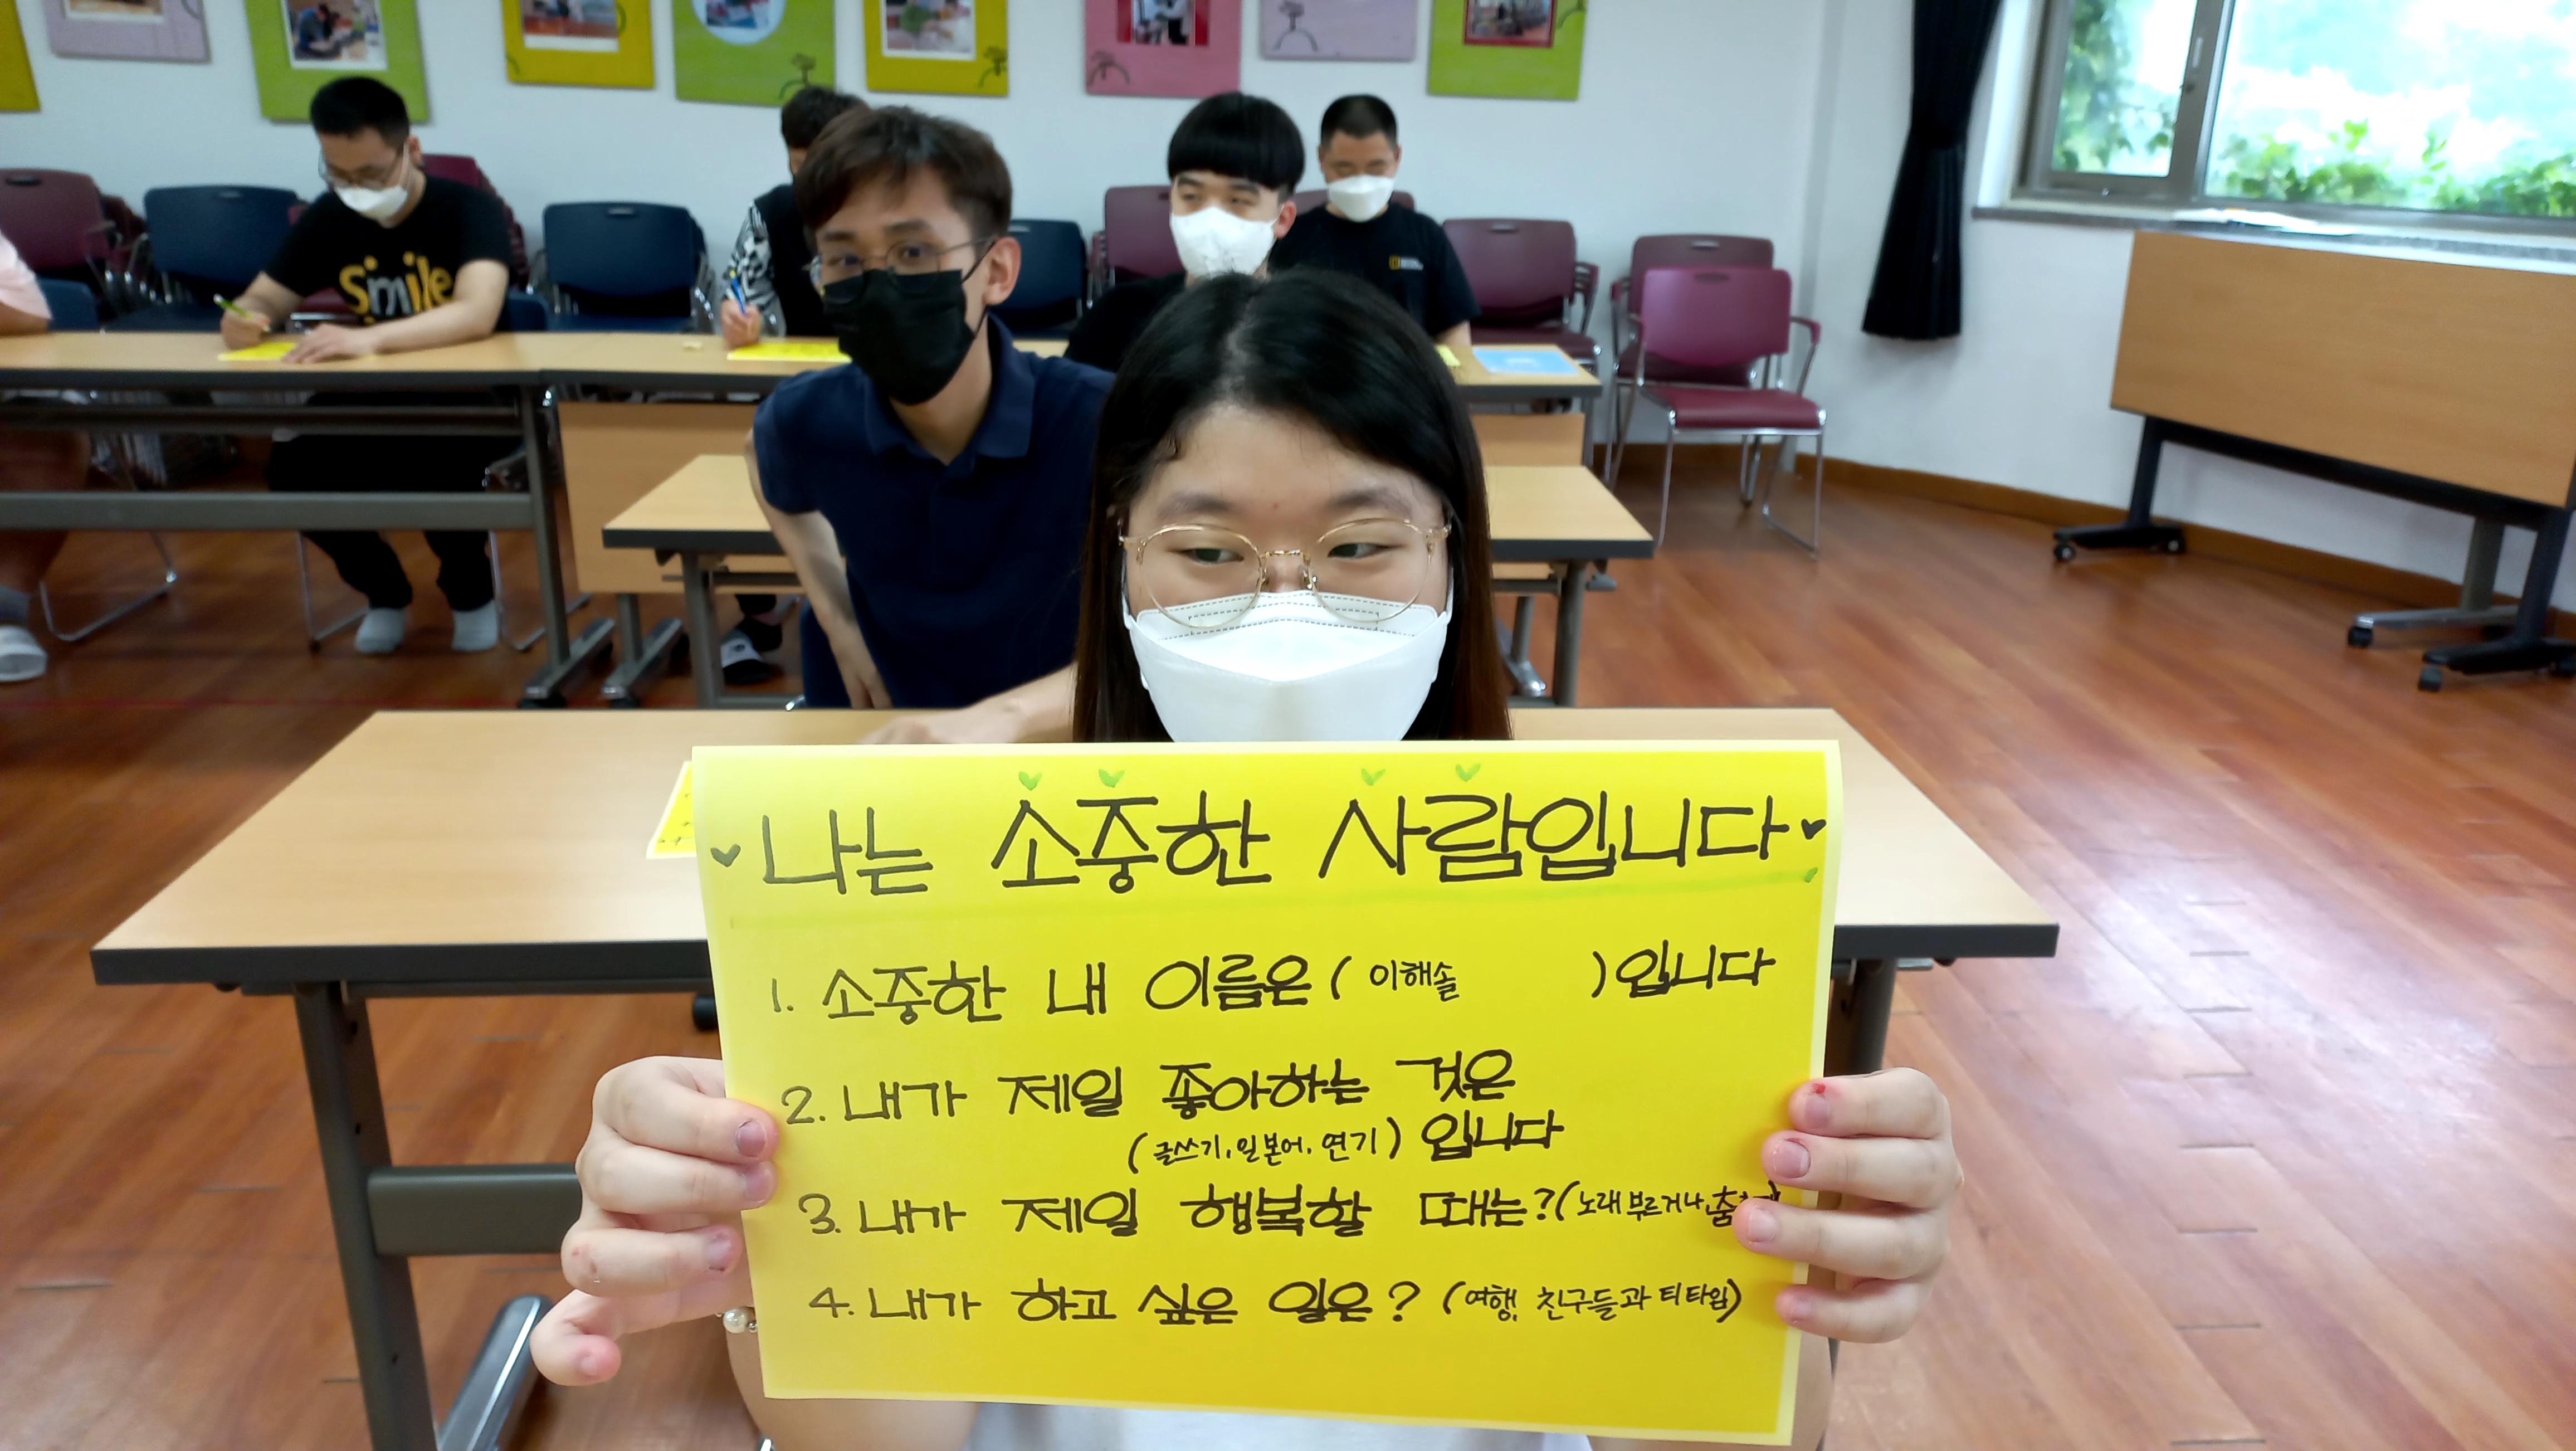 Smile
나는 소중한 사람입니다
1. 소중한 내 이름은 ( 이해솔 ) 입니다
2. 내가 제일 좋아하는 것은
(글쓰기, 일본어, 연기) 입니다
3. 내가 제일 행복할 때는? (노래 부르거나, 춤
4. 내가 하고 싶은 일은? (여행, 친구들과 티타임)